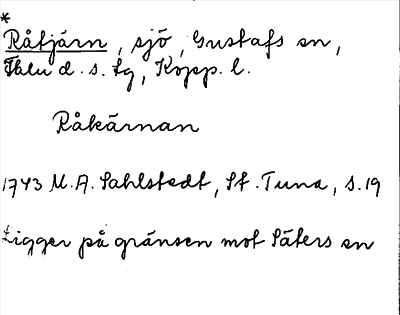 *
Råtjärn, sjö, Gustafs sn,
Fhlu d. s. tg, Kopp. l.
Råkärnan
1743 M. A. Sahlstedt, St. Tuna, s. 19
Ligger på gränsen mot Säters sn